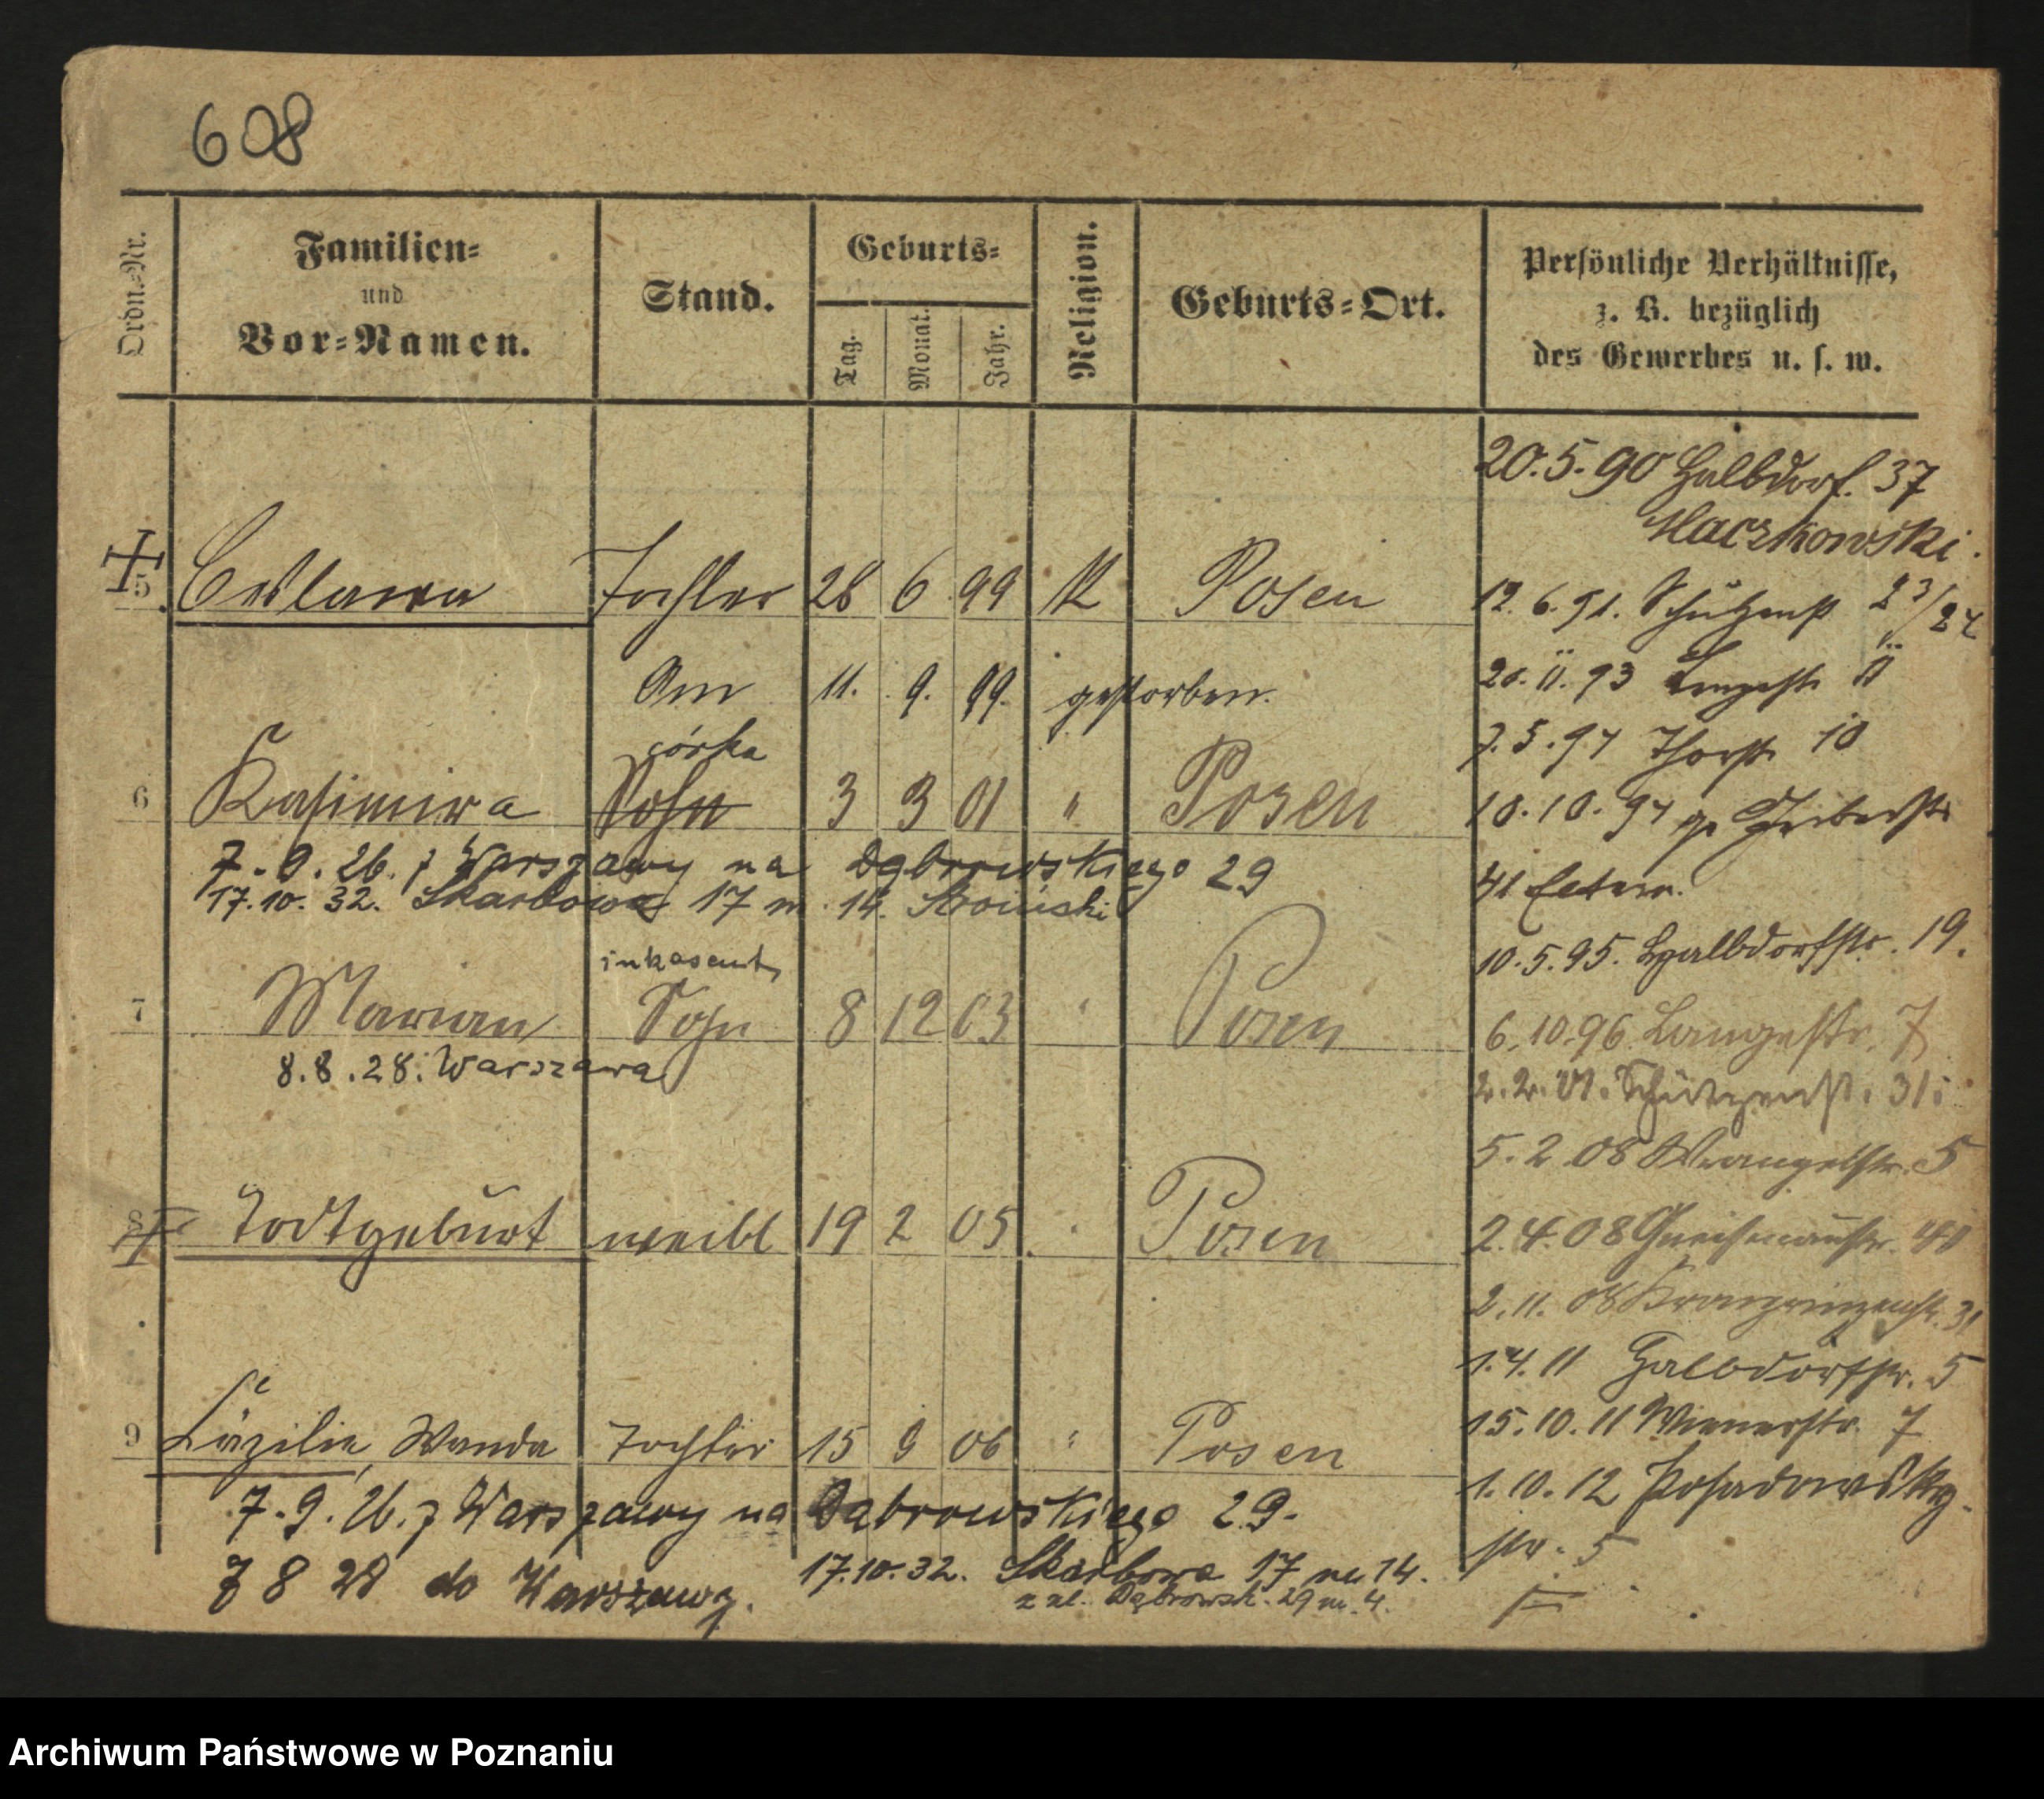 608
Ordn.-Nr.
Familien-
und
Vor-Namen.
Stand.
Geburts-
Tag.
Monat.
Jahr.
Religion.
Geburts-Ort.
Persönliche Verhältnisse,
z. B. bezüglich
des Gewerbes u. s. w.
5 Tochter 28 6 99 K Posen
Am 11. 9. 99. gestorben.
córka
6 Kasimira Sohn 3 3 01 " Posen
7.9.26. z Warszawy na Dąbrowskiego 29
17.10.32. Skarbowa 17 m. 14.
inkasent
7 Marian Sohn 8 12 03 " Posen
8.8.28. Warszawa
8 Todtgeburt weibl 19 2 05 Posen
9 Cäzilie, Wanda Tochter 15 9 06 " Posen
7.9.26. z Warszawy na Dąbrowskiego 29.
7 8 28 do Warszawy.
17.10.32. Skarbowa 17 m. 14.
z ul. Dąbrowsk. 29 m. 4.
20.5.90 Halbdorf. 37
12.6.91. Schützenst 23/24
20.11.93 Langestr 11
7.5.94 Thorstr 10
18.10.94 Gerberstr
41 Eltern.
10.5.95. Halbdorfstr. 19.
6.10.96. Langestr. 7
2.2.01. Schützenst. 31
5.2.08 Wrangelstr. 5
2.4.08 Gneisenaustr.
2.11.08 Kronprinzenstr. 31
1.4.11 Halbdorfstr. 5
15.10.11 Wienerstr. 7
1.10.12 Posadowsky-
str. 5
Archiwum Państwowe w Poznaniu